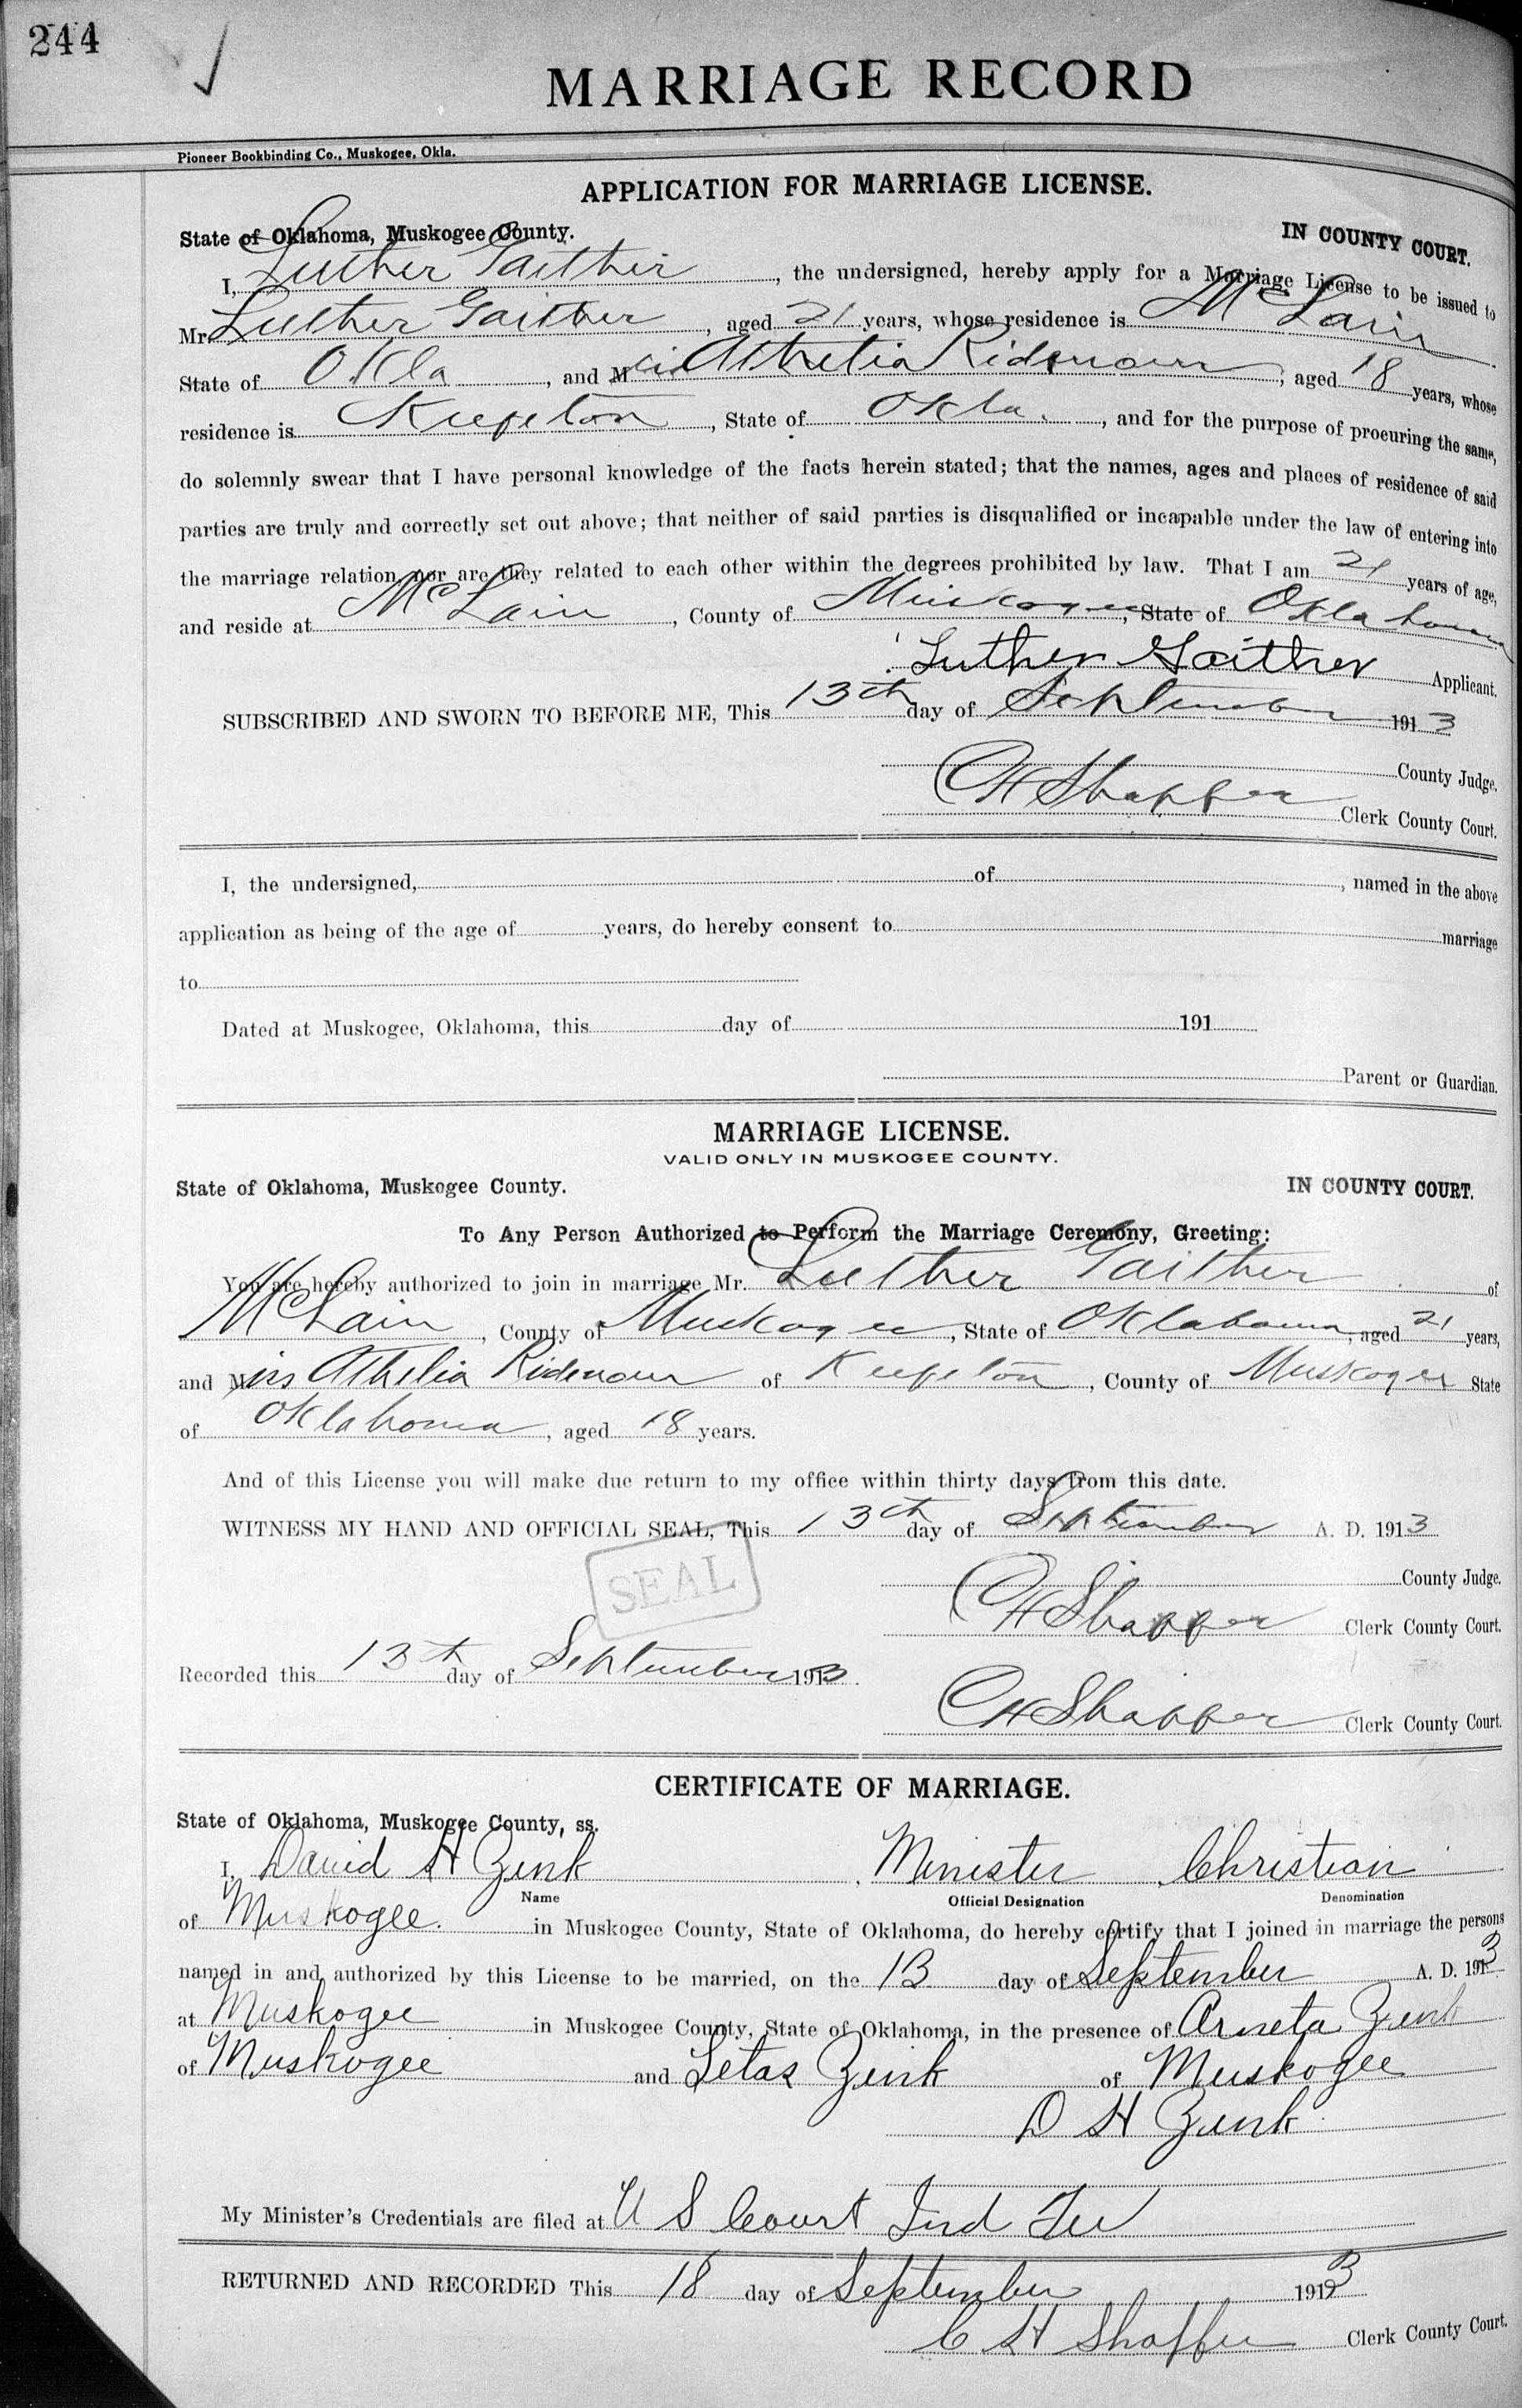 244
MARRIAGE RECORD
Pioneer Bookbinding Co., Muskogee, Okla.
APPLICATION FOR MARRIAGE LICENSE.
State of Oklahoma, Muskogee County. IN COUNTY COURT.
I, Luther Gaither, the undersigned, hereby apply for a Marriage License to be issued to
Mr. Luther Gaither, aged 21 years, whose residence is McLain
State of Okla, and Miss Athelia Ridenour, aged 18 years, whose
residence is Keefeton, State of Okla., and for the purpose of procuring the same,
do solemnly swear that I have personal knowledge of the facts herein stated; that the names, ages and places of residence of said
parties are truly and correctly set out above; that neither of said parties is disqualified or incapable under the law of entering into
the marriage relation nor are they related to each other within the degrees prohibited by law. That I am 21 years of age,
and reside at McLain, County of Muskogee, State of Oklahoma
Luther Gaither Applicant.
SUBSCRIBED AND SWORN TO BEFORE ME, This 13th day of September 1913
County Judge.
CH Shaffer Clerk County Court.
I, the undersigned, of , named in the above
application as being of the age of years, do hereby consent to marriage
to
Dated at Muskogee, Oklahoma, this day of 191
Parent or Guardian.
MARRIAGE LICENSE.
VALID ONLY IN MUSKOGEE COUNTY.
State of Oklahoma, Muskogee County. IN COUNTY COURT.
To Any Person Authorized to Perform the Marriage Ceremony, Greeting:
You are hereby authorized to join in marriage Mr. Luther Gaither of
McLain, County of Muskogee, State of Oklahoma, aged 21 years,
and Miss Athelia Ridenour of Keefeton, County of Muskogee State
of Oklahoma, aged 18 years.
And of this License you will make due return to my office within thirty days from this date.
WITNESS MY HAND AND OFFICIAL SEAL, This 13th day of September A. D. 1913
SEAL
County Judge.
CH Shaffer Clerk County Court.
Recorded this 13th day of September 1913.
CH Shaffer Clerk County Court.
CERTIFICATE OF MARRIAGE.
State of Oklahoma, Muskogee County, ss.
I, David H Zink, Minister, Christian
Name Official Designation Denomination
of Muskogee. in Muskogee County, State of Oklahoma, do hereby certify that I joined in marriage the persons
named in and authorized by this License to be married, on the 13 day of September A. D. 1913
at Muskogee in Muskogee County, State of Oklahoma, in the presence of Arneta Zink
of Muskogee and Letas Zink of Muskogee
D H Zink
My Minister's Credentials are filed at U S Court Ind Ter
RETURNED AND RECORDED This 18 day of September 1913
C H Shaffer Clerk County Court.